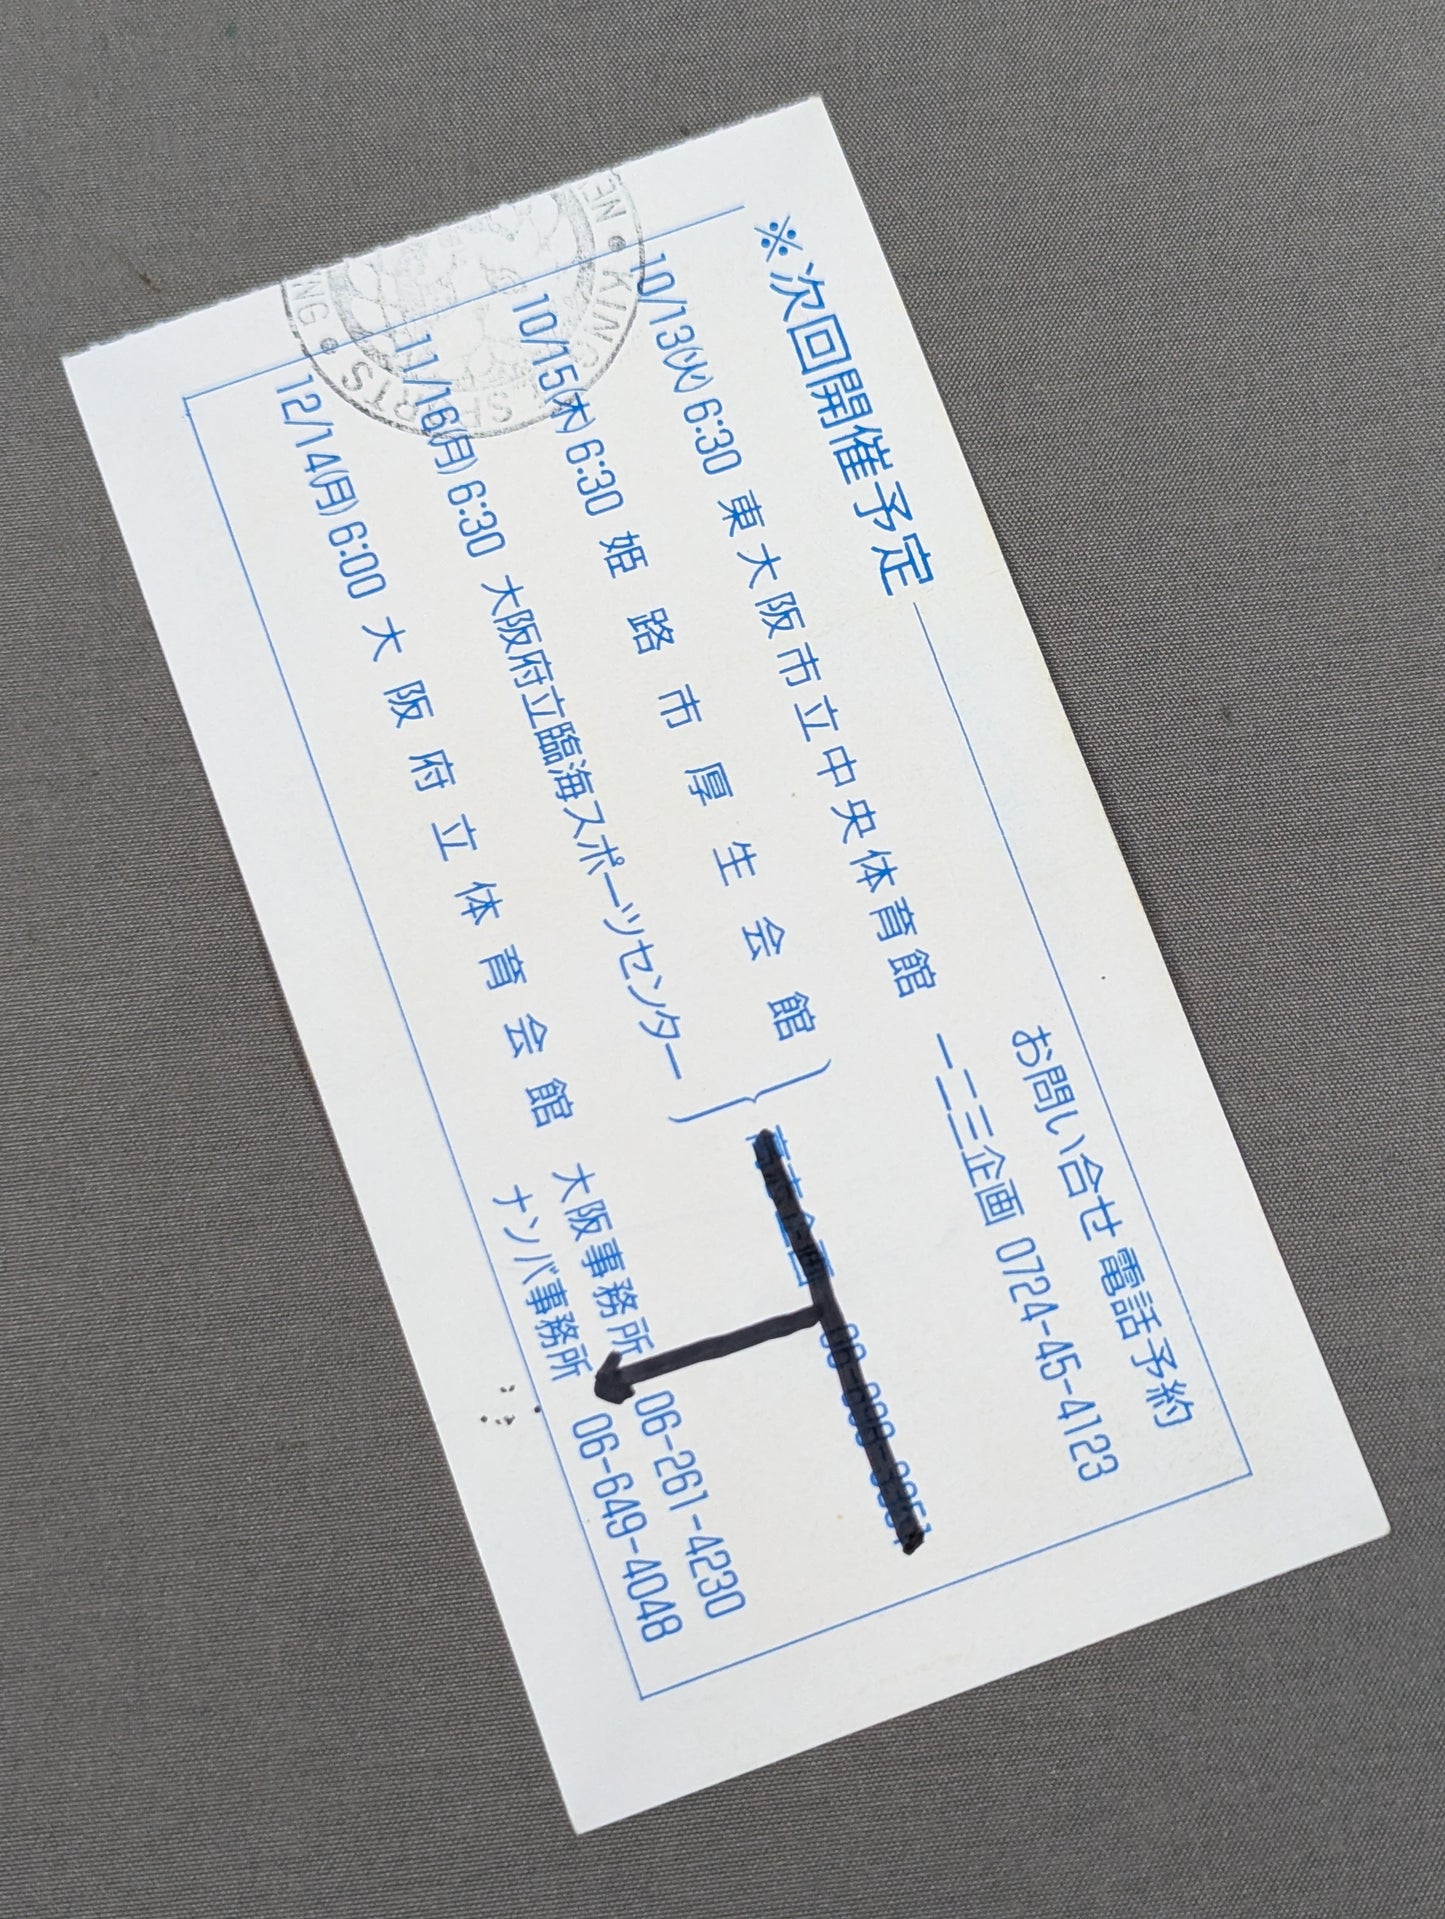 ※次回開催予定
お問い合せ電話予約
10/13(火) 6:30 東大阪市立中央体育館 一二三企画 0724-45-4123
10/15(木) 6:30 姫路市厚生会館
11/16(月) 6:30 大阪府立臨海スポーツセンター
12/14(月) 6:00 大阪府立体育会館 大阪事務所 06-261-4230
ナンバ事務所 06-649-4048
KING SPORTS